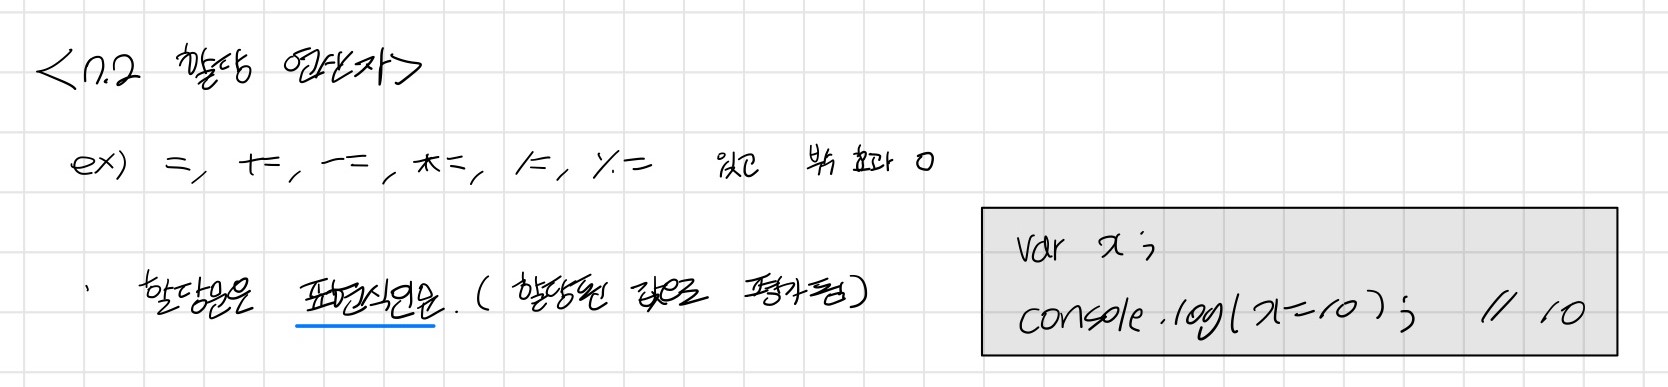 <7.2 할당 연산자>
ex) =, +=, -=, *=, /=, %= 있고 부수 효과 O
· 할당문은 표현식인문. (할당된 값으로 평가됨)
var x;
console.log(x=10); // 10